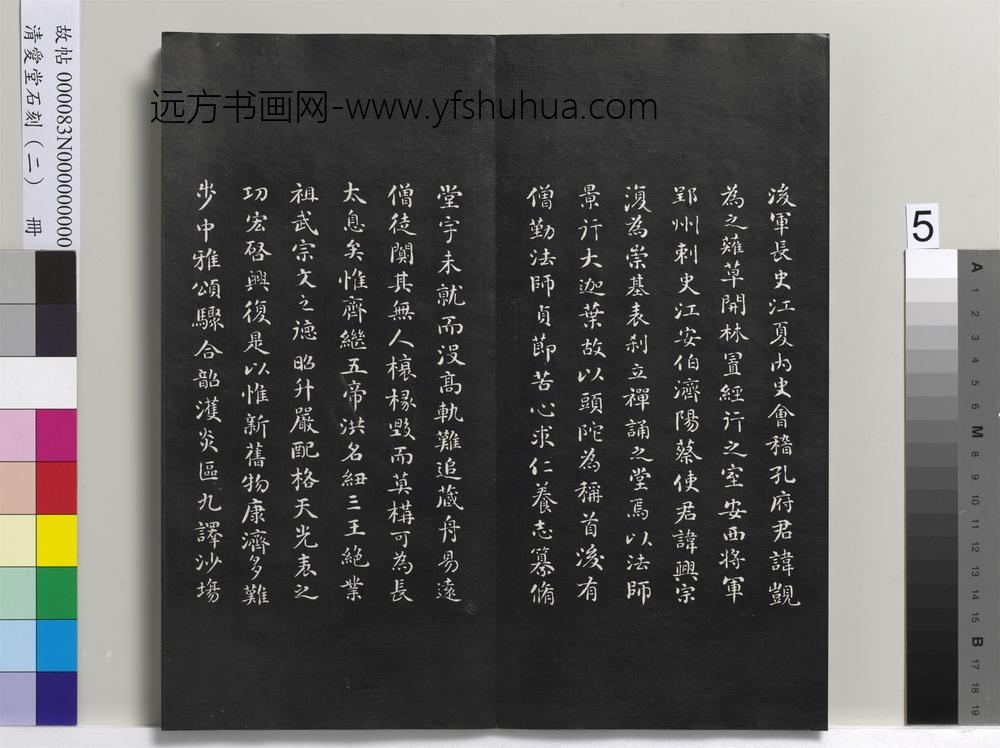 後軍長史江夏内史會稽孔府君諱覬
為之薙草開林置經行之室安西將軍
郢州刺史江安伯濟陽蔡使君諱興宗
復為崇基表刹立禪誦之堂焉以法師
景行大迦葉故以頭陀為稱首後有
僧勤法師貞節苦心求仁養志纂脩
堂宇未就而没高軌難追藏舟易遠
僧徒闃其無人榱椽毁而莫構可為長
太息矣惟齊繼五帝洪名紐三王絶業
祖武宗文之德昭升嚴配格天光表之
功宏啓興復是以惟新舊物康濟多難
步中雅頌驟合韶濩炎區九譯沙場
远方书画网-www.yfshuhua.com
故帖 000083N000000000
清愛堂石刻(二) 冊
5
A
1
2
3
4
5
6
M
8
9
10
11
12
13
14
15
B
17
18
19